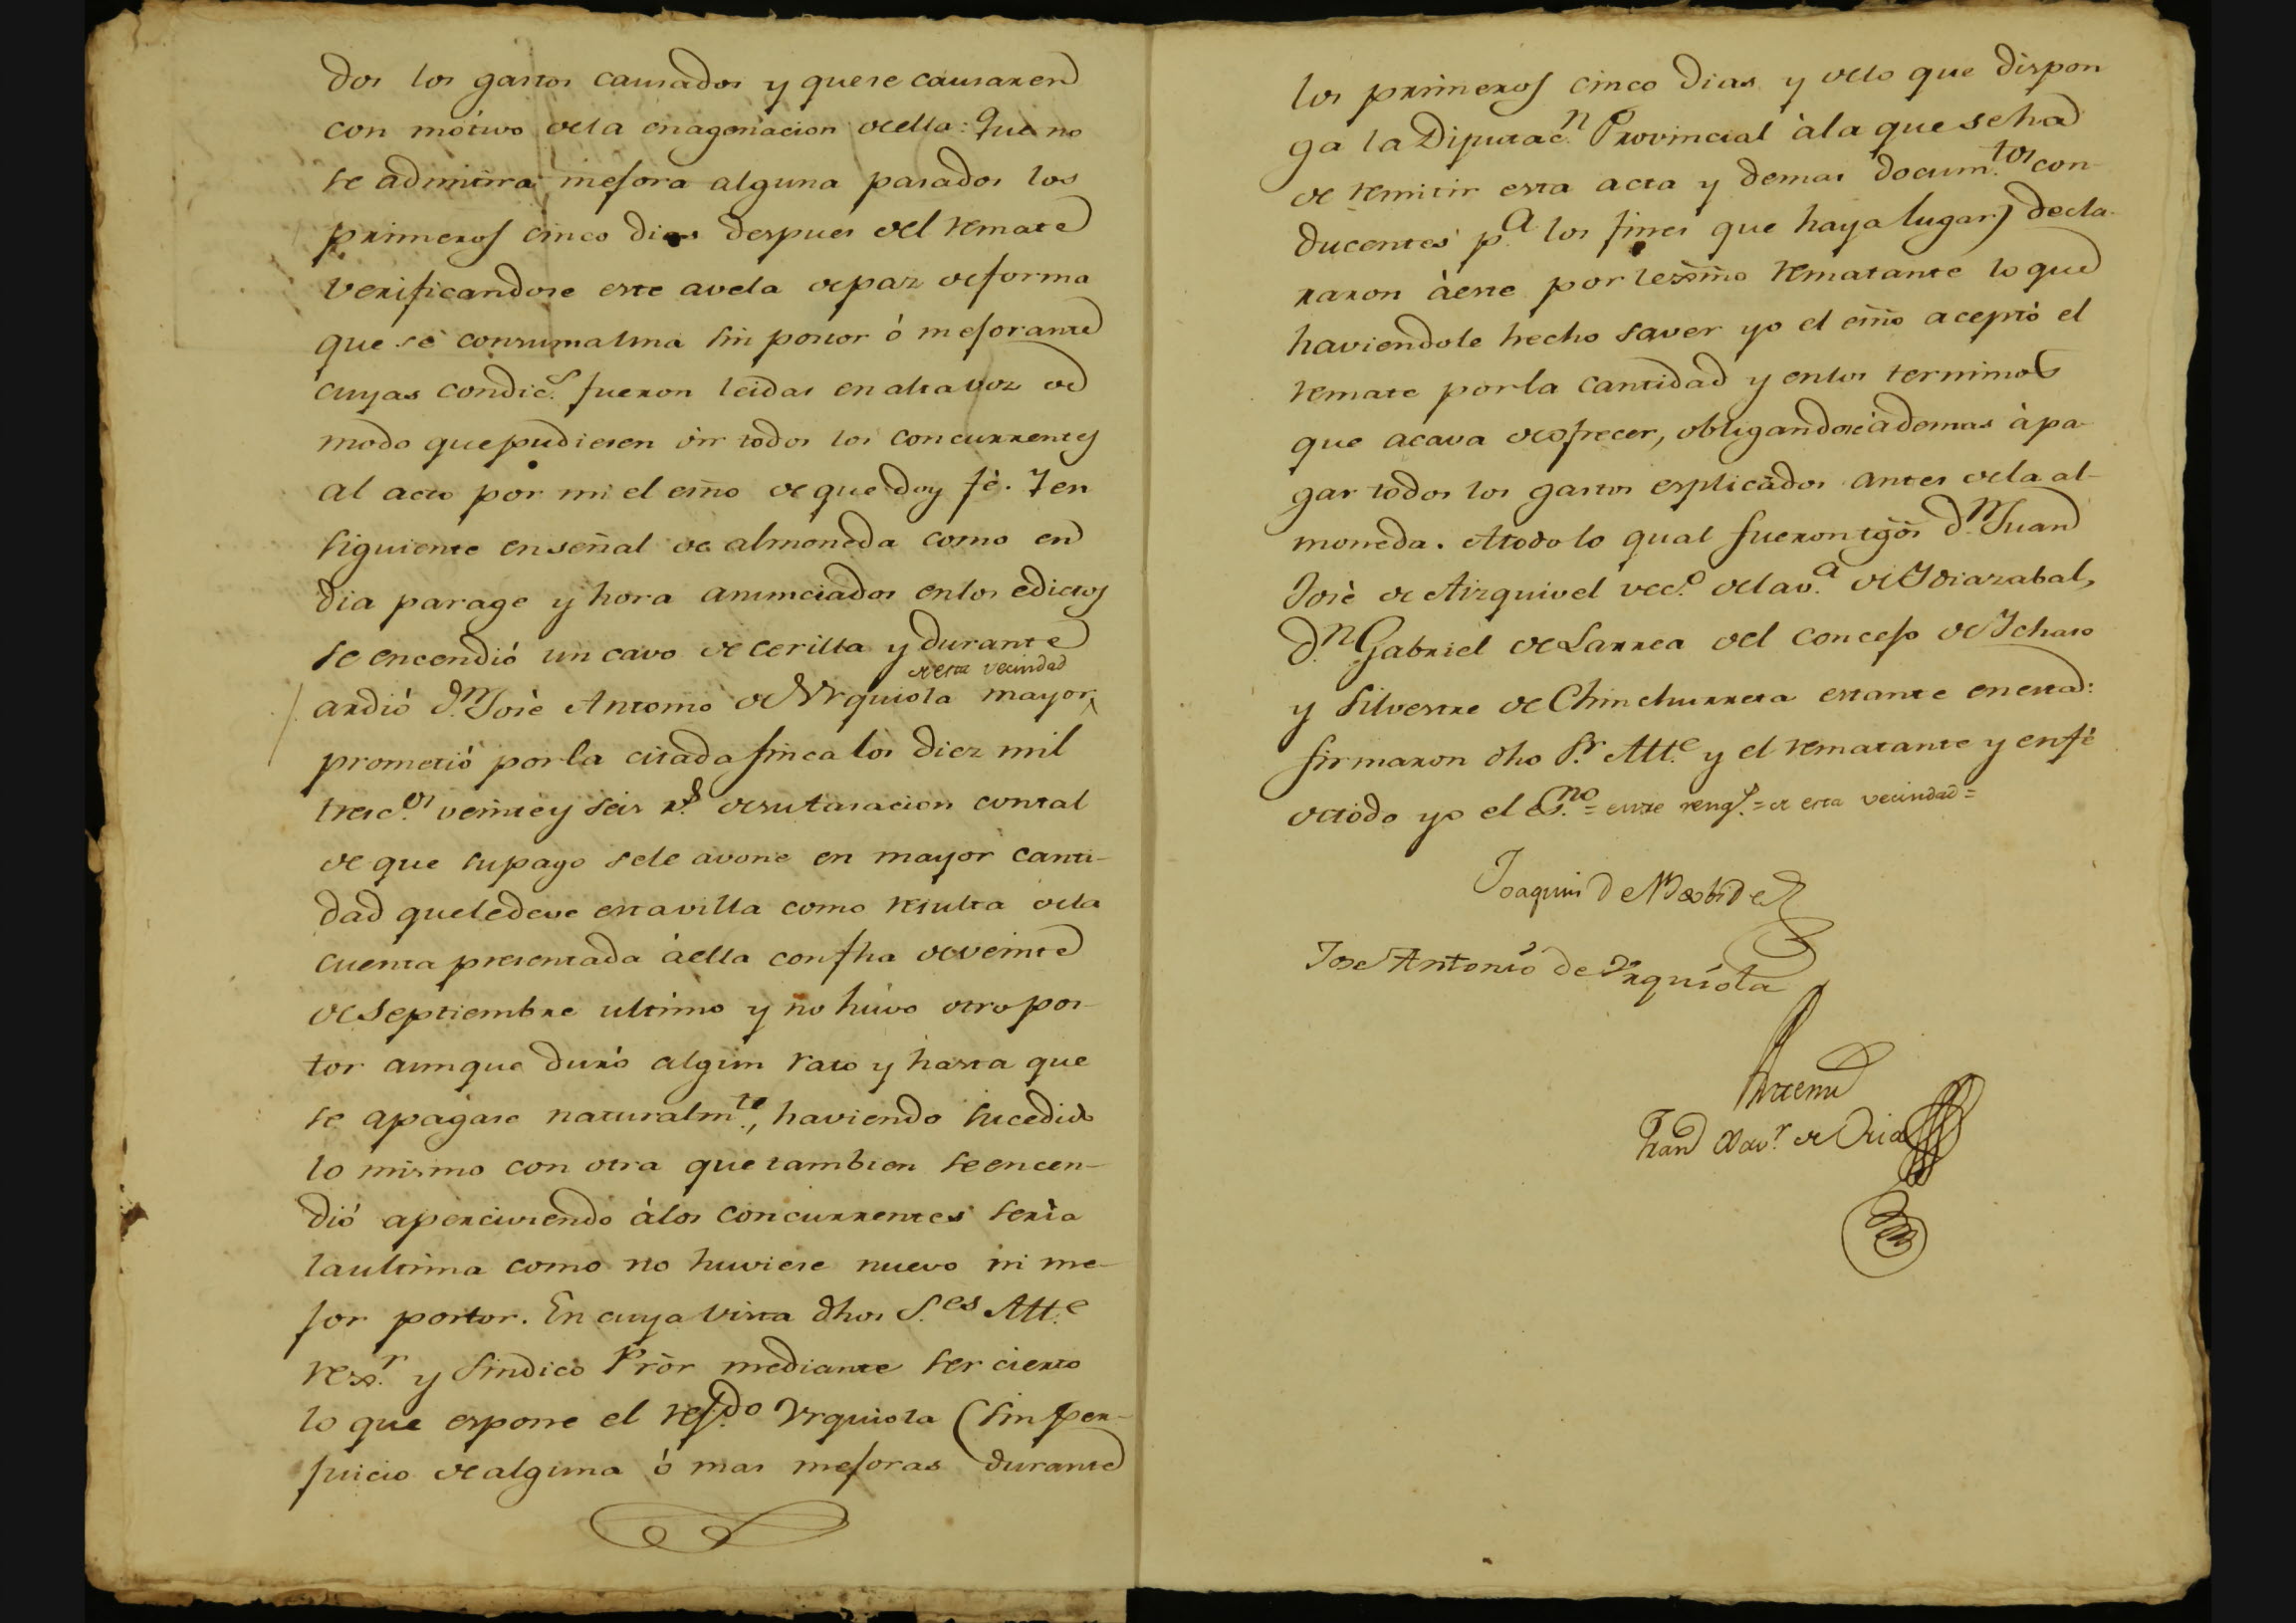 dos los gastos causados y quese causaren
con mótivo dela enagenacion deella: Que no
se admitira mejora alguna pasados los
primeros cinco dias despues del remate
verificandose este avela depaz deforma
que sè consuma una sin postor ó mejorante
cuyas condic.s fueron leidas enaltavoz de
modo quepudiesen oir todos los concurrentes
al acto por mi el esño de que doy fè. Y en
siguiente enseñal de almoneda como en
dia parage y hora anunciados enlos edictos
se encendió un cavo de cerilla y durante
de esta vecindad
ardió d.n Josè Antonio de Urquiola mayor
prometió porla citada finca los diez mil
tresc.os veinte y seis r.s desutasacion contal
de que supago sele avone en mayor canti-
dad queledeve estavilla como resulta dela
cuenta presentada áella confha deveinte
de septiembre ultimo y no húvo otro pos-
tor aunque duró algun rato y hasta que
se apagase naturalm.te, haviendo sucedido
lo mismo con otra que tambien se encen-
dió aperciviendo álos concurrentes seria
laultima como no huviese nuevo ni me-
jor postor. En cuya vista dhos S.es Alt.e
rex.r y Sindico Pròr mediante ser cierto
lo que espone el ref.do Urquiola (sin per-
juicio de alguna ó mas mejoras durante
los primeros cinco dias y delo que dispon
ga la Diputac.n Provincial àla que seha
de remitir esta acta y demas docum.tos con-
ducentes p.a los fines que haya lugar) decla-
raron àeste por lexmo rematante lo que
haviendole hecho saver yo el esño aceptó el
remate porla cantidad y enlos terminos
que acava deofrecer, obligandose ademas àpa-
gar todos los gastos esplicados antes dela al-
moneda. Atodo lo qual fueron tgòs d.n Juan
Josè de Aizquivel vec.o delav.a de Ydiazabal,
d.n Gabriel de Larrea del concejo de Ychaso
y Silvestre de Chinchurreta estante en esta:
firmaron dho S.r Alt.e y el rematante y enfé
detodo yo el es.no = entre reng.s = de esta vecindad =
Joaquin de
Jose Antonio de Urquiola
Antemi
Fran.co Xav.r de Oria